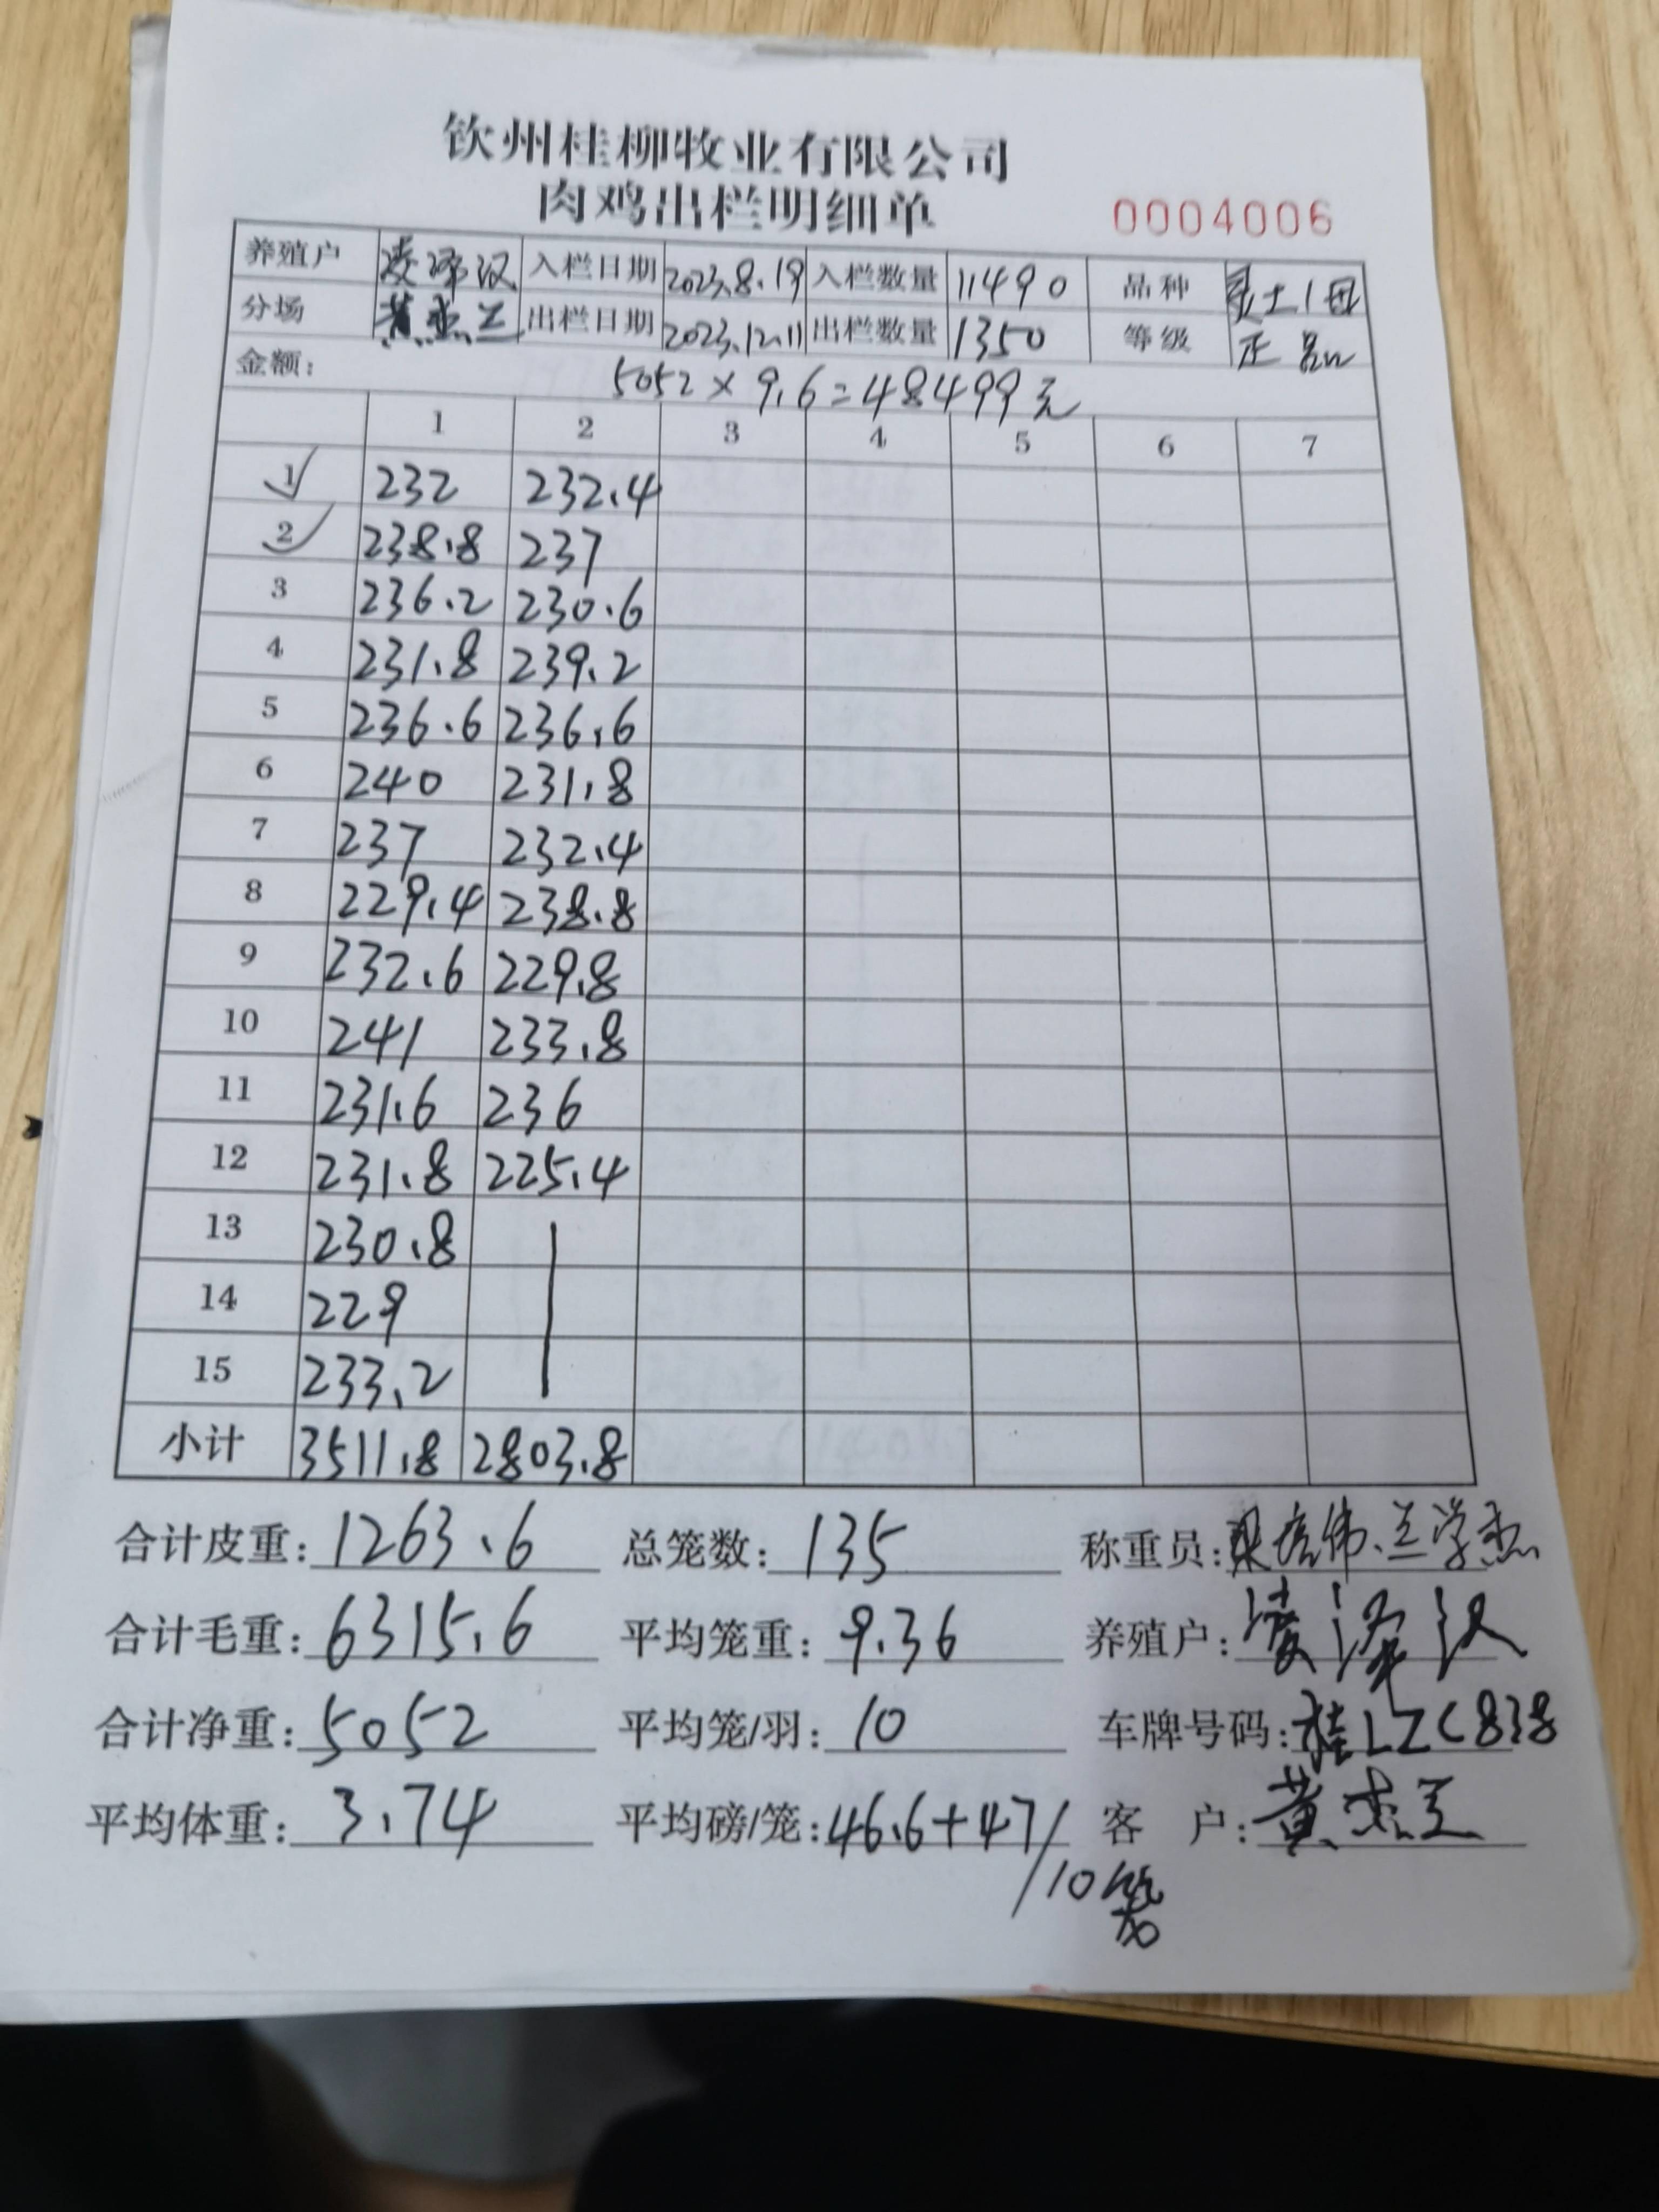 钦州桂柳牧业有限公司
肉鸡出栏明细单 0004006
养殖户 凌泽汉 入栏日期 2023.8.19 入栏数量 11490 品种 灵土1母
分场 出栏日期 2023.12.11 出栏数量 1350 等级 正品
金额: 5052×9.6=48499元
1 2 3 4 5 6 7
1 232 232.4
2 238.8 237
3 236.2 230.6
4 231.8 239.2
5 236.6 236.6
6 240 231.8
7 237 232.4
8 229.4 238.8
9 232.6 229.8
10 241 233.8
11 231.6 236
12 231.8 225.4
13 230.8
14 229
15 233.2
小计 3511.8 2803.8
合计皮重: 1263.6 总笼数: 135 称重员: 兰学杰
合计毛重: 6315.6 平均笼重: 9.36 养殖户: 凌泽汉
合计净重: 5052 平均笼/羽: 10 车牌号码: 桂LZC838
平均体重: 3.74 平均磅/笼: 46.6+47/ 客 户: 黄
/10笼